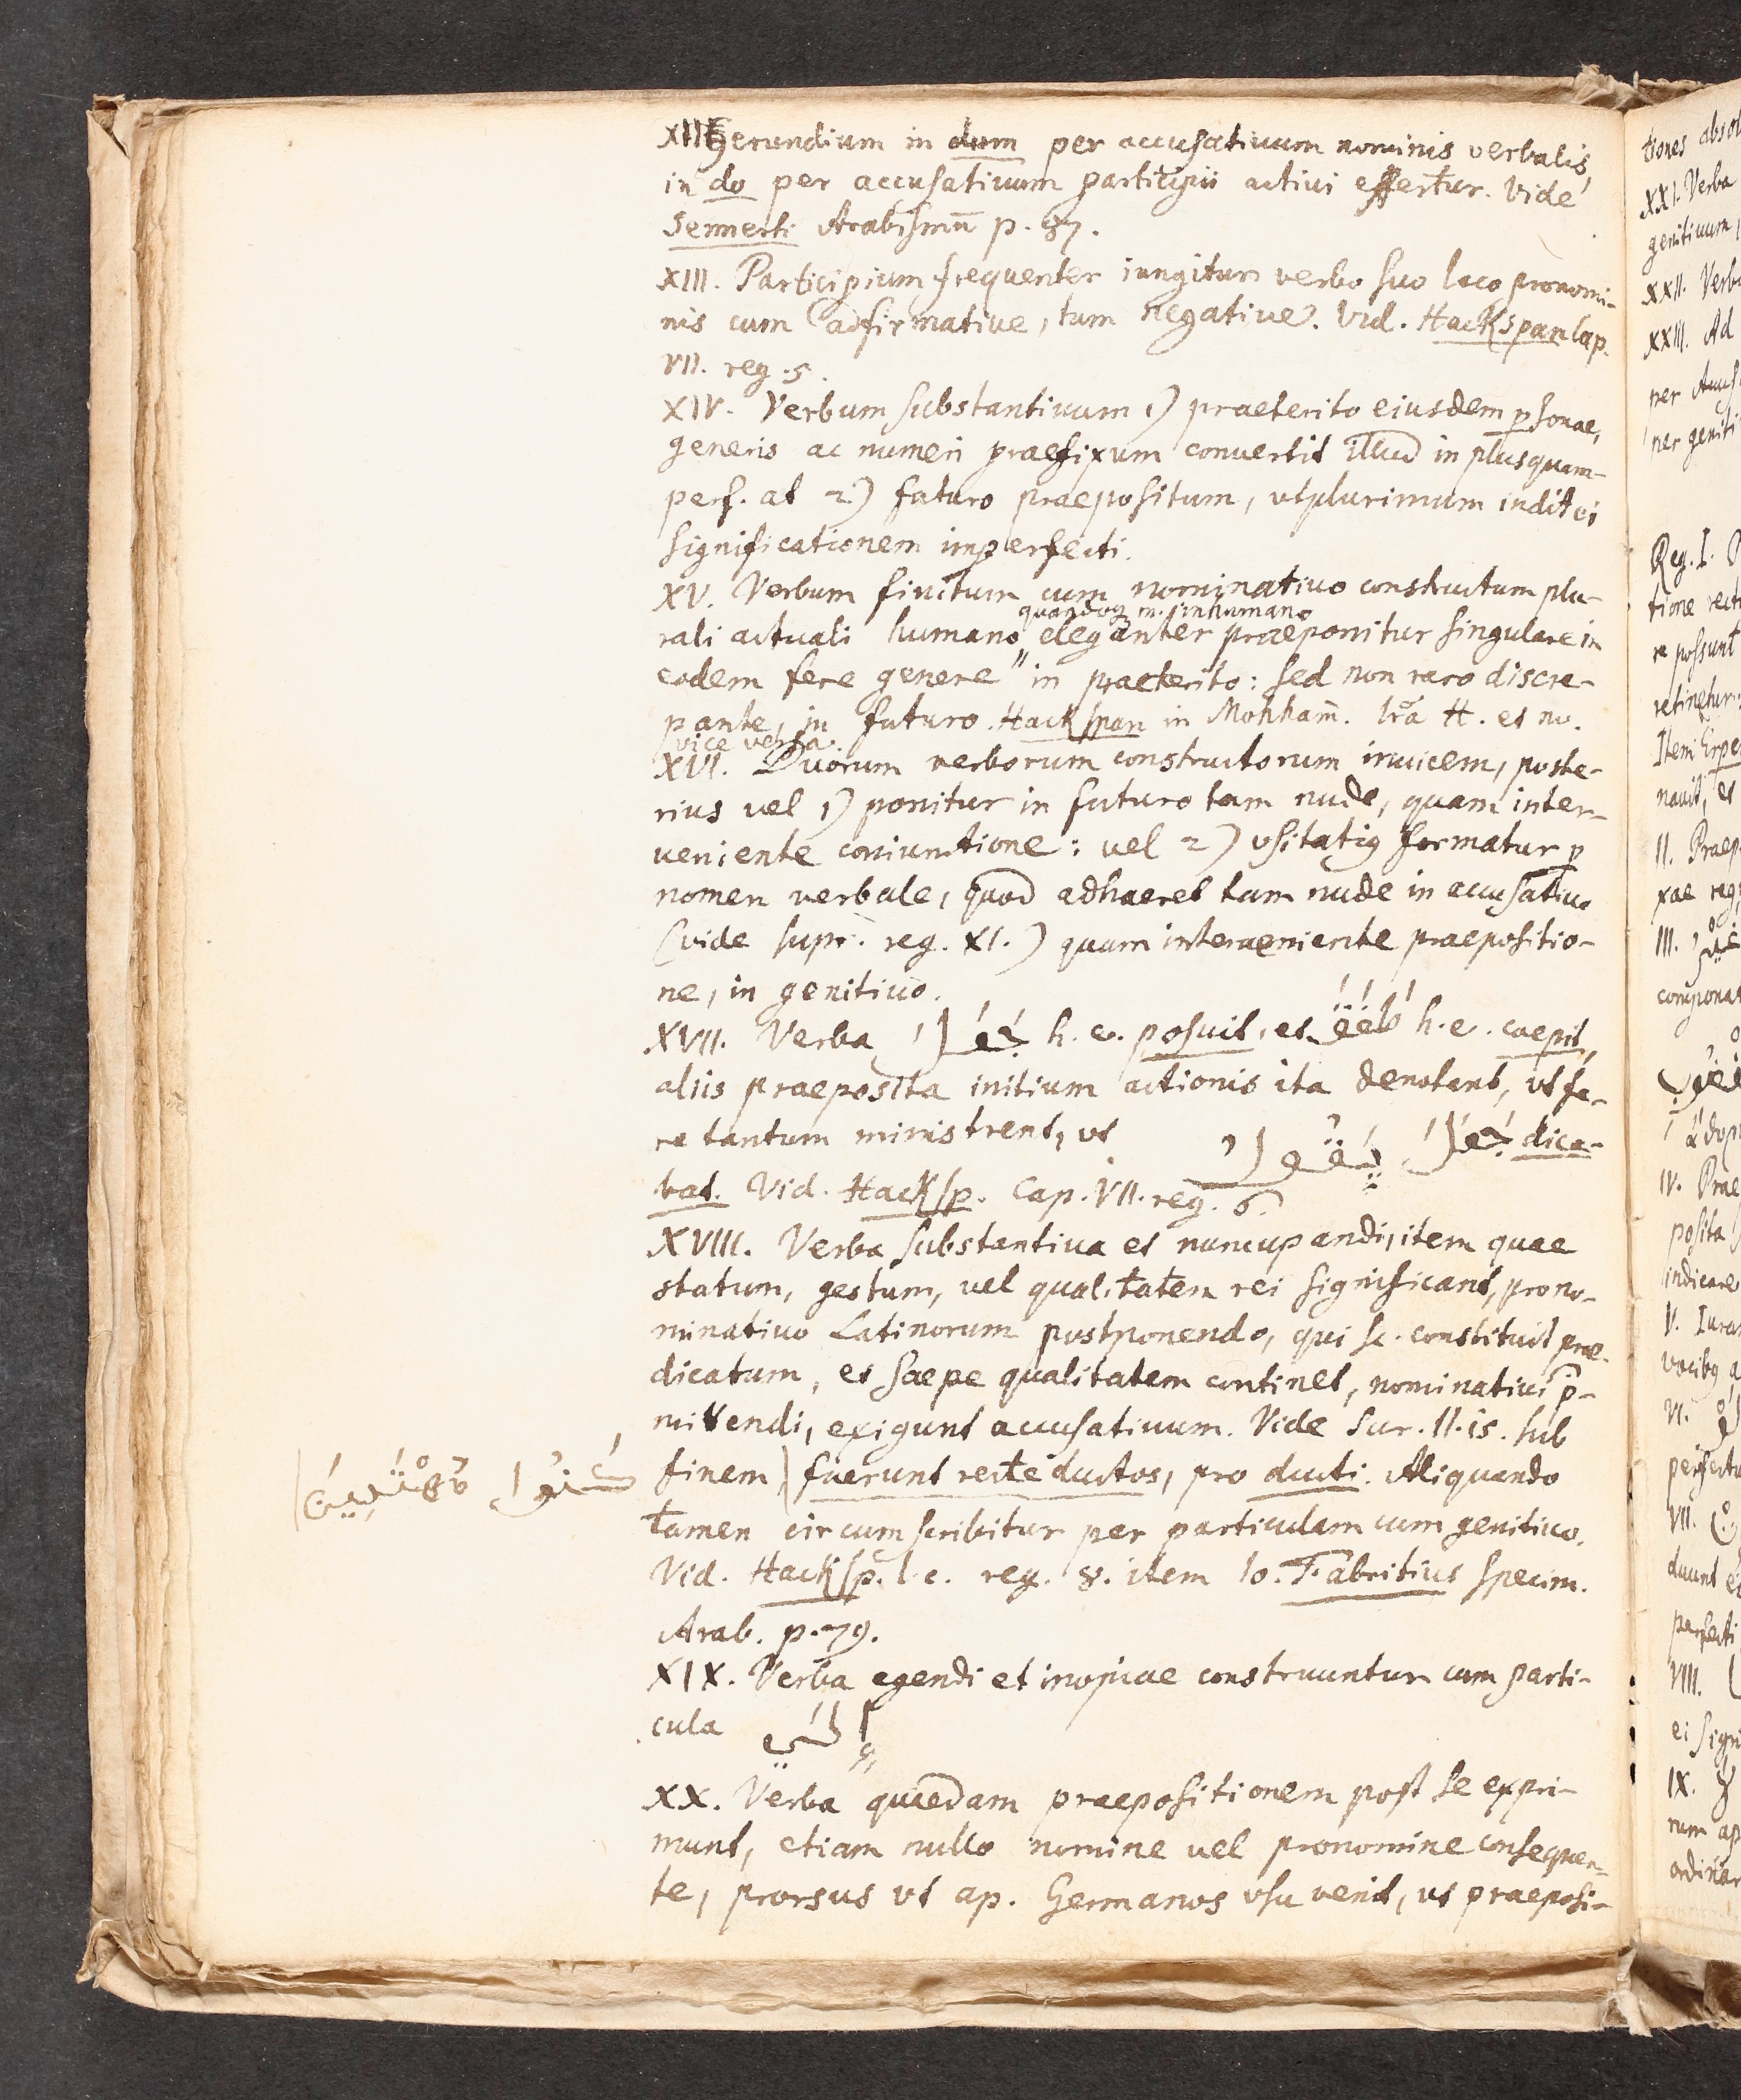 XII Gerundium in dum per accusativum nominis verbalis,
in do per accusativum participii activi effertur. Vide
Sennerti Arabismū p. 87.
XIII. Participium frequenter iungitur verbo suo loco pronomi-
nis cum adfirmative, tum negative. Vid. Hackspan Cap.
VII. reg. 5.
XIV. Verbum substantivum 1) praeterito eiusdem psonae,
generis ac numeri praefixum convertit illud in plusquam-
perf. at 2) futuro praepositum, utplurimum indit ei
significationem imperfecti.
XV. Verbum finitum cum nominativo constructum plu-
quandoq; m. inhumano
rali actuali humano, eleganter praeponitur singulare in
eodem fere genere in praeterito: sed non raro discre-
pante, in futuro. Hackspan in Mohham̄. lrā H. et no.
vice versa.
XVI. Duorum verborum constructorum invicem, poste-
rius vel 1) ponitur in futuro tam nude, quam inter-
veniente coniunctione: vel 2) usitatiꝰ formatur p
nomen verbale, quod adhaeret tam nude in accusativo
(vide supr. reg. XI.) quam interveniente praepositio-
ne, in genitivo.
XVII. Verba جَعَلَ h. e. posuit, et طَفَقَ h. e. coepit,
aliis praeposita initium actionis ita denotant, ut fe-
re tantum ministrent, ut جَعَلَ يَقُولُ dice-
bat. Vid. Hacksp. Cap. VII. reg. 6.
XVIII. Verba substantiva et nuncupandi, item quae
statum, gestum, vel qualitatem rei significant, pro no-
minativo Latinorum postponendo, qui sc. constituit prae-
dicatum, et saepe qualitatem continet, nominativi p̄-
mittendi, exigunt accusativum. Vide Sur. II. 15. sub
finem) fuerunt recte ductos, pro ducti. Aliquando
tamen circumscribitur per particulam cum genitivo.
Vid. Hacksp. l. c. reg. 8. item Io. Fabritius Specim.
Arab. p. 79.
XIX. Verba egendi et inopiae construuntur cum parti-
cula إِلَى
XX. Verba quaedam praepositionem post se expri-
munt, etiam nullo nomine vel pronomine consequen-
te, prorsus ut ap. Germanos usu venit, ut praeposi-
tiones
XXI. Verba
genitivum
XXII. Verb
XXIII. Ad
per
per geniti
Reg. I.
tione
re possunt
retinetur
Item Erpe
II. Praep
III.
componat
IV. Prae
posita
indicare
V. Iura
VI.
VII.
VIII.
IX.